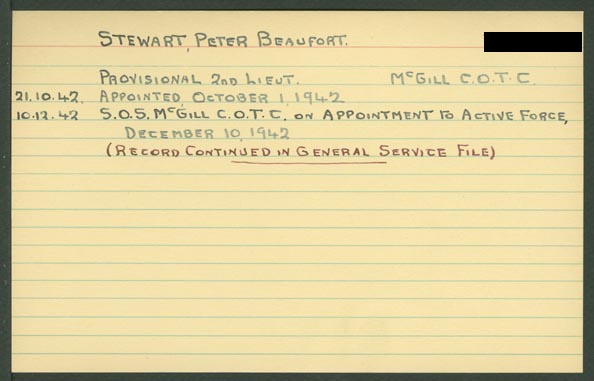 STEWART, PETER BEAUFORT.
PROVISIONAL 2ND LIEUT. McGILL C.O.T.C.
21.10.42. APPOINTED OCTOBER 1, 1942
10.12.42 S.O.S. McGILL C.O.T.C. ON APPOINTMENT TO ACTIVE FORCE,
DECEMBER 10, 1942
(RECORD CONTINUED IN GENERAL SERVICE FILE)